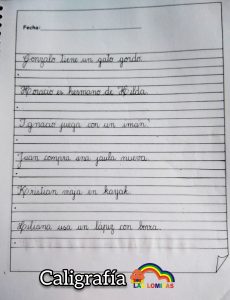 Fecha:
Gonzalo tiene un gato gordo.
Horacio es hermano de Hilda.
Ignacio juega con un imán.
Juan compra una jaula nueva.
Kristian viaja en kayak.
Liliana usa un lápiz con borra.
Caligrafía